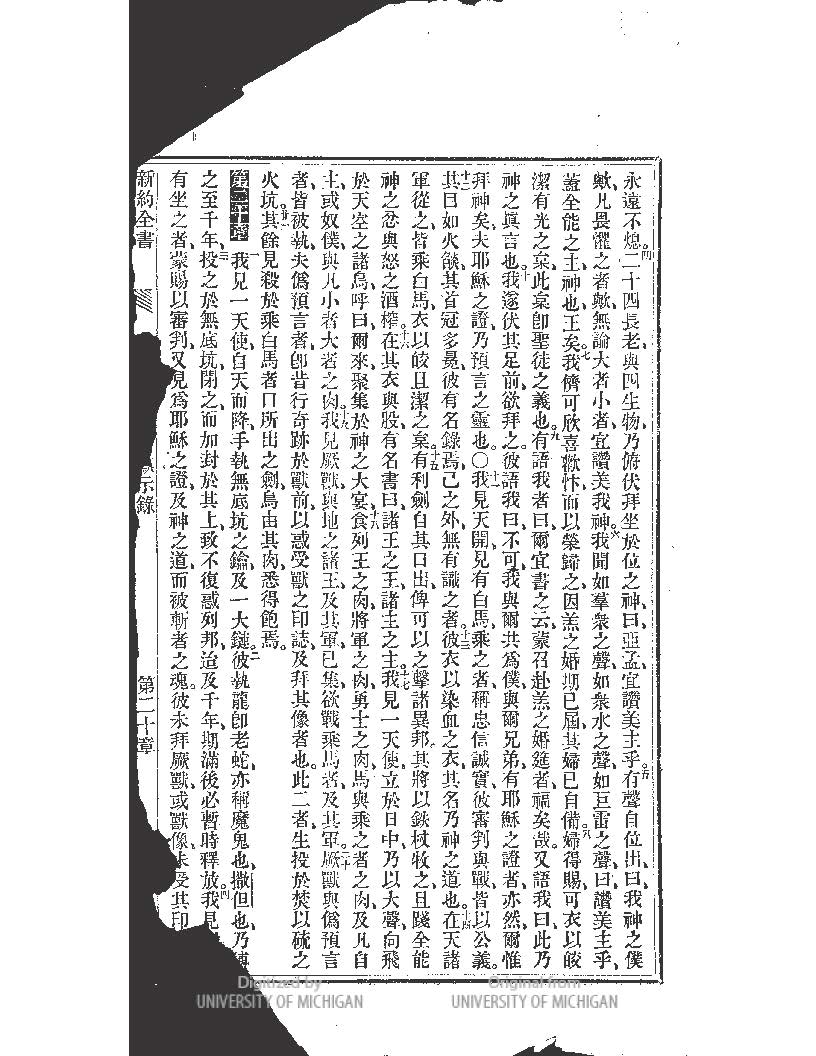 永遠不熄。四二十四長老與四生物乃俯伏拜坐於位之神、曰、亞孟、宜讚美主乎。五有聲自位出、曰、我神之僕
歟、凡畏懼之者歟、無論大者小者、宜讚美我神。六我聞如羣衆之聲、如衆水之聲、如巨雷之聲、曰、讚美主乎、
蓋全能之主神也、王矣。七我儕可欣喜歡忭而以榮歸之、因羔之婚期已屆、其婦已自備。八婦得賜、可衣以皎
潔有光之枲、此枲卽聖徒之義也。九有語我者曰、爾宜書之云、蒙召赴羔之婚筵者、福矣哉。又語我曰、此乃
神之眞言也。十我遂伏其足前、欲拜之。彼語我曰、不可、我與爾共爲僕、與爾兄弟有耶穌之證者、亦然、爾惟
拜神矣、夫耶穌之證、乃預言之靈也。〇十一我見天開、見有白馬、乘之者、稱忠信誠實、彼審判與戰、皆以公義。
十二其目如火燄、其首冠多冕、彼有名錄焉、己之外、無有識之者。十三彼衣以染血之衣、其名乃神之道也。十四在天諸
軍從之、皆乘白馬、衣以皎且潔之枲。十五有利劍自其口出、俾可以之擊諸異邦。其將以鐵杖牧之、且踐全能
神之忿與怒之酒榨。十六在其衣與股、有名書曰、諸王之王、諸主之主。十七我見一天使立於日中、乃以大聲向飛
於天空之諸鳥、呼曰、爾來聚集於神之大宴、十八食列王之肉、將軍之肉、勇士之肉、馬與乘之者之肉、及凡自
主或奴僕、與凡小者大者之肉。十九我見厥獸、與地之諸王、及其軍已集、欲戰乘馬者、及其軍。二十厥獸與僞預言
者、皆被執、夫僞預言者、卽昔行奇跡於獸前、以惑受獸之印誌、及拜其像者也。此二者生投於焚以硫之
火坑。廿一其餘見殺於乘白馬者口所出之劍、鳥由其肉、悉得飽焉。
第二十章 一我見一天使、自天而降、手執無底坑之鑰、及一大鏈。二彼執龍、卽老蛇、亦稱魔鬼也、撒但也、乃縛
之至千年、三投之於無底坑、閉之、而加封於其上、致不復惑列邦、迨及千年期滿後、必暫時釋放。四我見
有坐之者、蒙賜以審判、又見爲耶穌之證、及神之道、而被斬者之魂。彼未拜厥獸、或獸像、未受其印
新約全書 示錄 第二十章
Digitized by
UNIVERSITY OF MICHIGAN
Original from
UNIVERSITY OF MICHIGAN